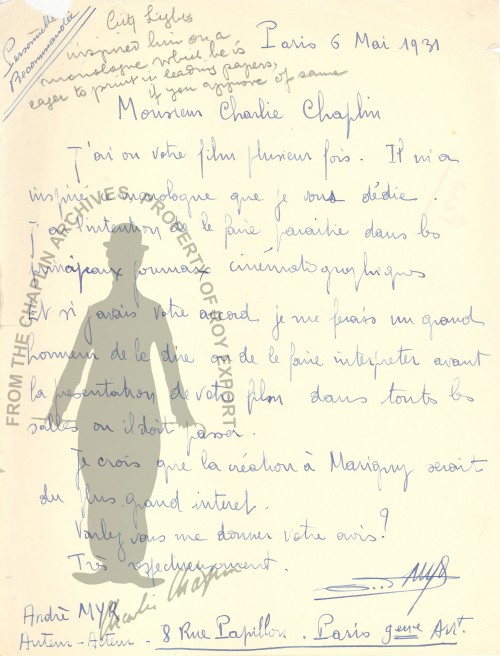 Personnelle
Recommandée
City Lights
inspired him on a
monologue which he is
eager to print in leading papers,
if you approve of same
Paris 6 Mai 1931
Monsieur Charlie Chaplin
J'ai vu votre film plusieurs fois. Il m'a
inspiré le monologue que je vous dédie.
J'ai l'intention de le faire paraitre dans les
principaux journaux cinématographiques
Et si j'avais votre accord je me ferais un grand
honneur de le dire ou de le faire interpreter avant
la presentation de votre film dans touts les
salles ou il doit passer.
Je crois que la création à Marigny serait
du plus grand interet.
Voulez vous me donner votre avis?
Très respectueusement.
MYR
André MYR
Auteur-Acteur - 8 Rue Papillon. Paris 9eme Arrt.
FROM THE CHAPLIN ARCHIVES - PROPERTY OF ROY EXPORT
Charlie Chaplin